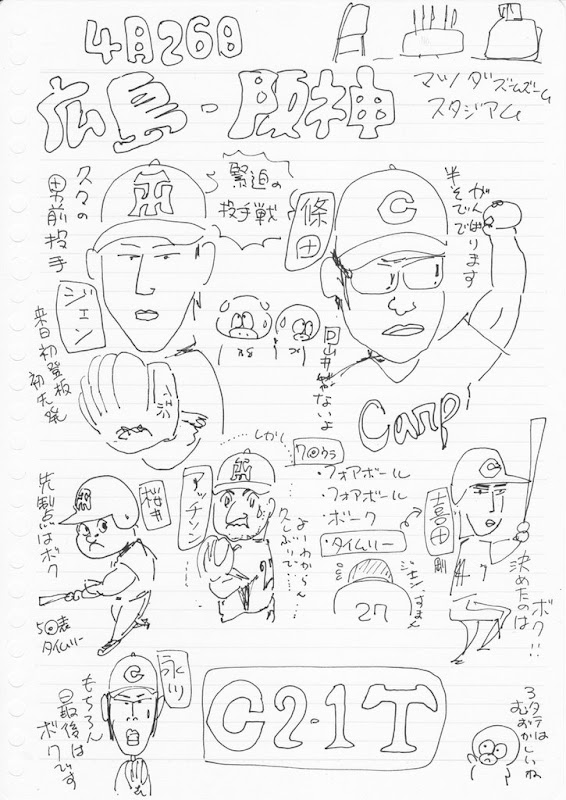 4月26日
広島・阪神
マツダズームズーム
スタジアム
久々の
男前投手
ジェン
来日初登板
初先発
緊迫の
投手戦
篠田
半そでで
がんばります
C
回山井じゃないよ
Carp
先制点はボク
桜井
5回表
タイムリー
しかし
アッチソン
よいわからん
久しぶりで…
7回ウラ
・フォアボール
・フォアボール
・ボーク
・タイムリー
喜田
剛
決めたのは
ボク!!
ジェンすまん
27
C
永川
もちろん
最後は
ボクです
C2-1T
3タテは
むずかしいね